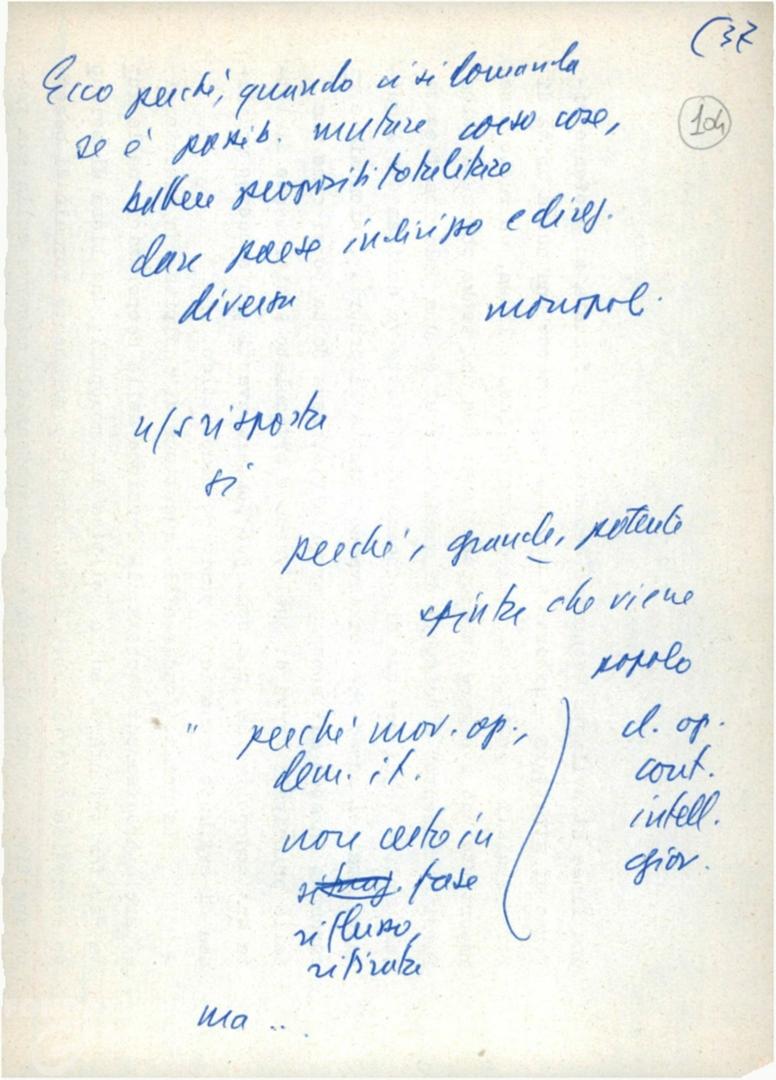 (37
104
Ecco perché, quando ci si domanda
se è possib. mutare corso cose,
battere propositi totalitari
dare paese indirizzo e direz.
diversa monopol.
n/s risposta
sì
perché, grande, potente
spinta che viene
popolo
" perché mov. op.,
dem. it.
non certo in
fase
riflusso,
ritirata
cl. op.
cont.
intell.
giov.
ma ...